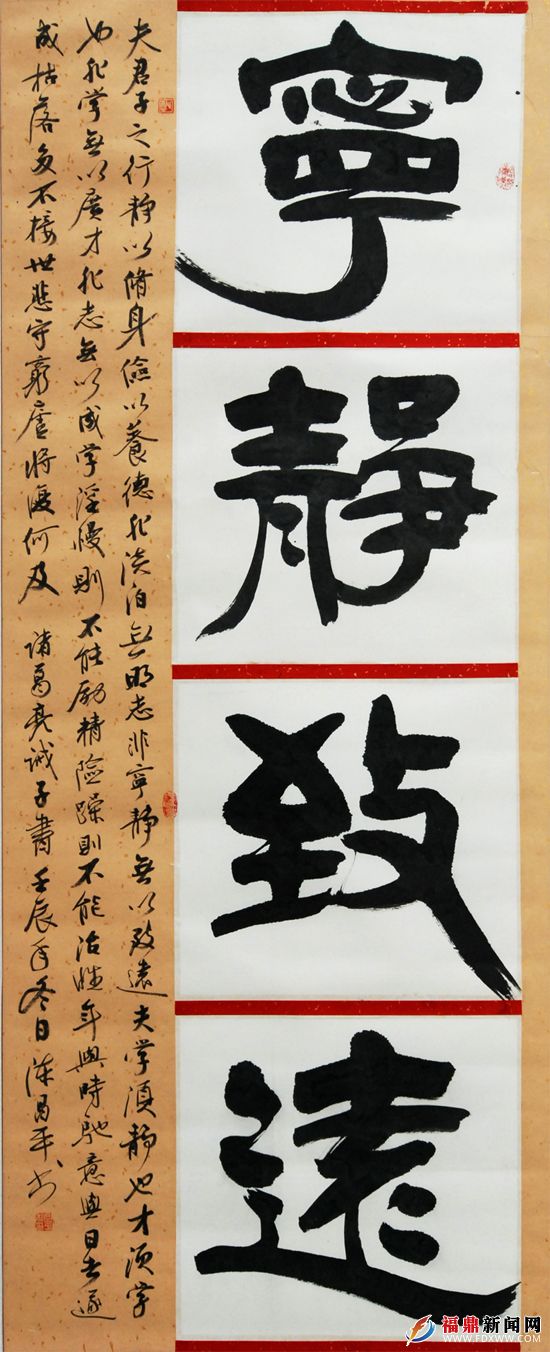 寧
靜
致
遠
夫君子之行靜以脩身儉以養德非淡泊無明志非寧靜無以致遠夫學須靜也才須學
也非學無以廣才非志無以成學淫慢則不能励精險躁則不能治性年與時馳意與日去遂
成枯落多不接世悲守窮廬將復何及 諸葛亮誡子書 壬辰年冬日陳昌平书
福鼎新闻网
WWW.FDXWW.COM